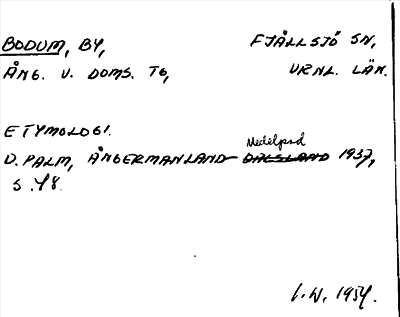 BODUM, BY, FJÄLLSJÖ SN,
ÅNG. V. DOMS. TG, VRNL. LÄN.
ETYMOLOGI.
D. PALM, ÅNGERMANLAND Medelpad DALSLAND 1937,
S. 48.
I. W. 1954.